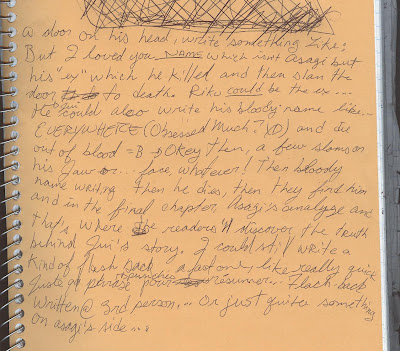 a door on his head, write something like:
But I loved you NAME which isnt Asagi but
his "ex" which he killed and then slam the
door to death. Riku could be the ex...
He could also write his bloody name like...
EVERYWHERE (Obsessed Much? XD) and die
out of blood =B Okey then, a few slams on
his Jaw ... face, whatever! Then bloody
name writing then he dies, then they find him
and in the final chapter, Asagi's analyze and
that's where readers'll discover the truth
behind Jin's story. I could still write a
Kind of flash back, a fast one, like really quick
Juste a phrase pour résumer... Flash-back
Written @ 3rd person... Or just quite something
on asagi's side...